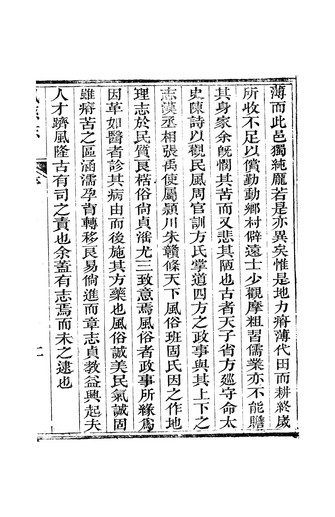 薄而此邑獨純龐若是亦異矣惟是地力瘠薄代田而耕終歲
所收不足以償勤動鄉村僻遠士少觀摩粗習儒業亦不能贍
其身家余旣憫其苦而又悲其陋也古者天子省方廵守命太
史陳詩以觀民風周官訓方氏掌道四方之政事與其上下之
志漢丞相張禹使屬潁川朱贛條天下風俗班固氏因之作地
理志於民質良楛俗尙貞淫尤三致意焉風俗者政事所緣爲
因革如醫者診其病由而後施其方藥也風俗誠美民氣誠固
雖瘠苦之區涵濡孕育轉移良易倘進而章志貞教益興起夫
人才躋風隆古有司之責也余蓋有志焉而未之逮也